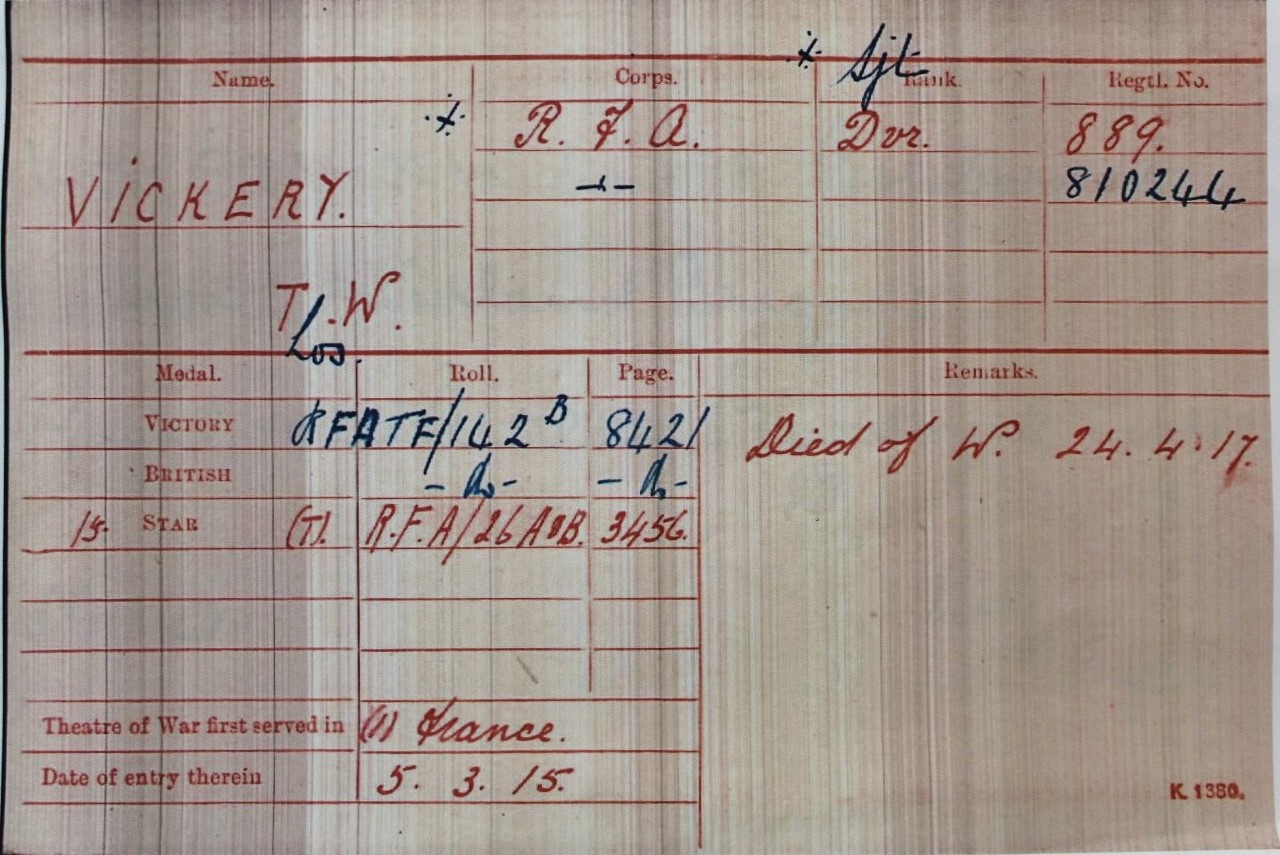 * Sjt
Name. Corps. Rank. Regtl. No.
* R. F. A. Dvr. 889.
VICKERY. -"- 810244
T. W.
Medal. Roll. Page. Remarks.
VICTORY RFATF/142 B 8421 Died of W. 24.4.17.
BRITISH - do - - do -
15. STAR (T). R.F.A/26A&B. 3456.
Theatre of War first served in (1) France.
Date of entry therein 5. 3. 15.
K. 1380.